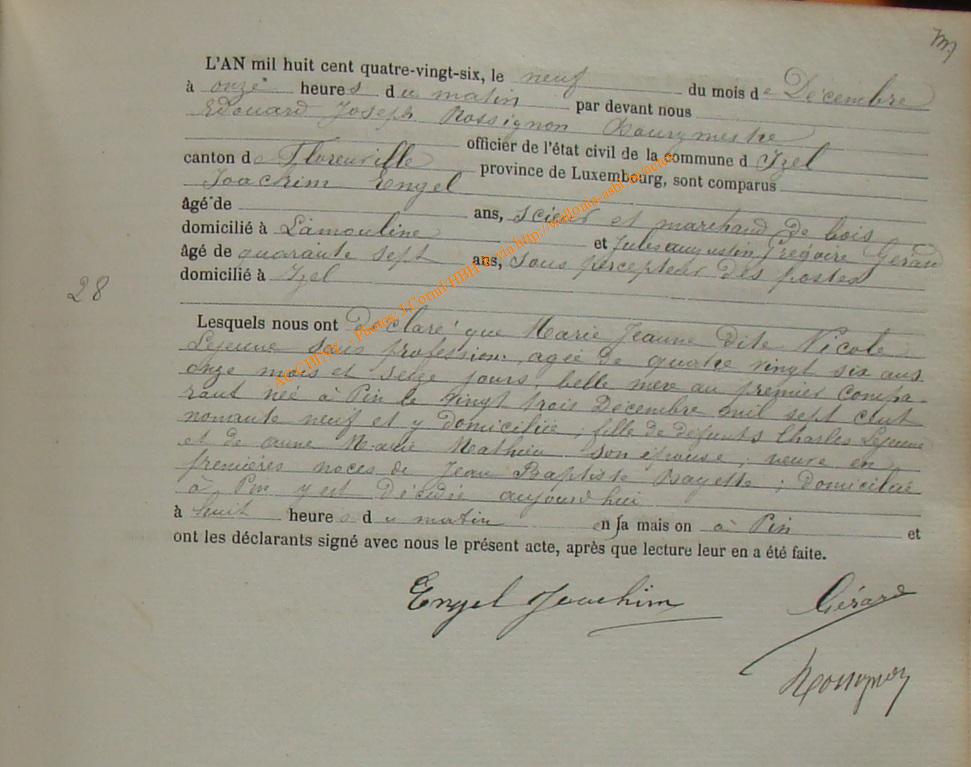 L'AN mil huit cent quatre-vingt-six, le neuf du mois de Décembre
à onze heures du matin par devant nous
Edouard Joseph Rossignon Bourgmestre
officier de l'état civil de la commune d Izel
canton de Florenville province de Luxembourg, sont comparus
Joachim Engel
âgé de ans, scieur et marchand de bois
domicilié à Lamouline et Jules augustin Grégoire Gérard
âgé de quarante sept ans, sous percepteur des postes
domicilié à Izel
28
Lesquels nous ont déclaré que Marie Jeanne dite Nicole
Lejeune sans profession, agée de quatre vingt six ans
onze mois et seize jours, belle mère au premier compa-
rant née à Pin le vingt trois Décembre mil sept cent
nonante neuf et y domiciliée; fille de défunts Charles Lejeune
et de anne Marie Mathieu son épouse; veuve en
premières noces de Jean Baptiste ; domiciliée
à Pin y est décédée aujourd'hui
à huit heures du matin en sa maison à Pin et
ont les déclarants signé avec nous le présent acte, après que lecture leur en a été faite.
Engel Joachim Gérard
Rossignon